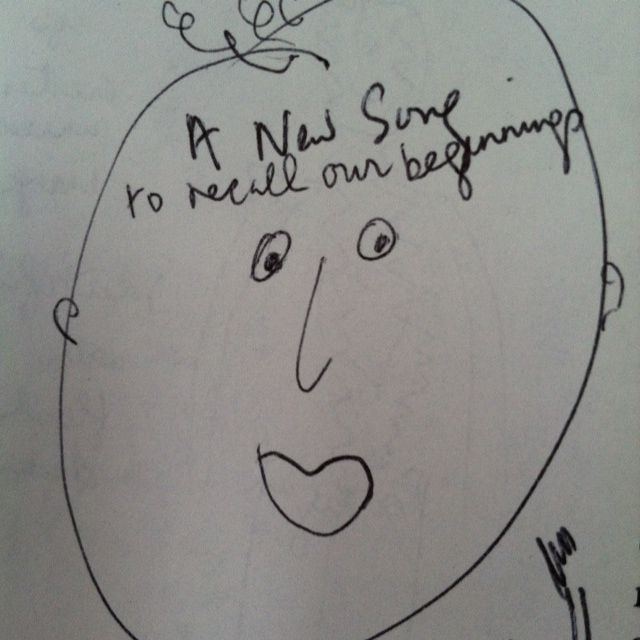 A New Song
to recall our beginnings